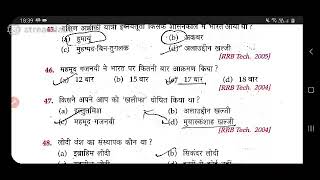 18:39
45. दक्षिण अफ्रीकी यात्री इब्नबतूता किसके शासनकाल में भारत आया था ?
(a) हुमायूं (b) अकबर
(c) मुहम्मद-बिन-तुगलक (d) अलाउद्दीन खल्जी
[RRB Tech. 2005]
46. महमूद गजनबी ने भारत पर कितनी बार आक्रमण किया ?
(a) 12 बार (b) 15 बार (c) 17 बार (d) 18 बार
[RRB Tech. 2004]
47. किसने अपने आप को 'खलीफा' घोषित किया था ?
(b) अलाउद्दीन खल्जी
(c) महमूद गजनबी (d) मुबारकशाह खल्जी
[RRB Tech. 2004]
48. लोदी वंश का संस्थापक कौन था ?
(a) इब्राहिम लोदी (b) सिकंदर लोदी